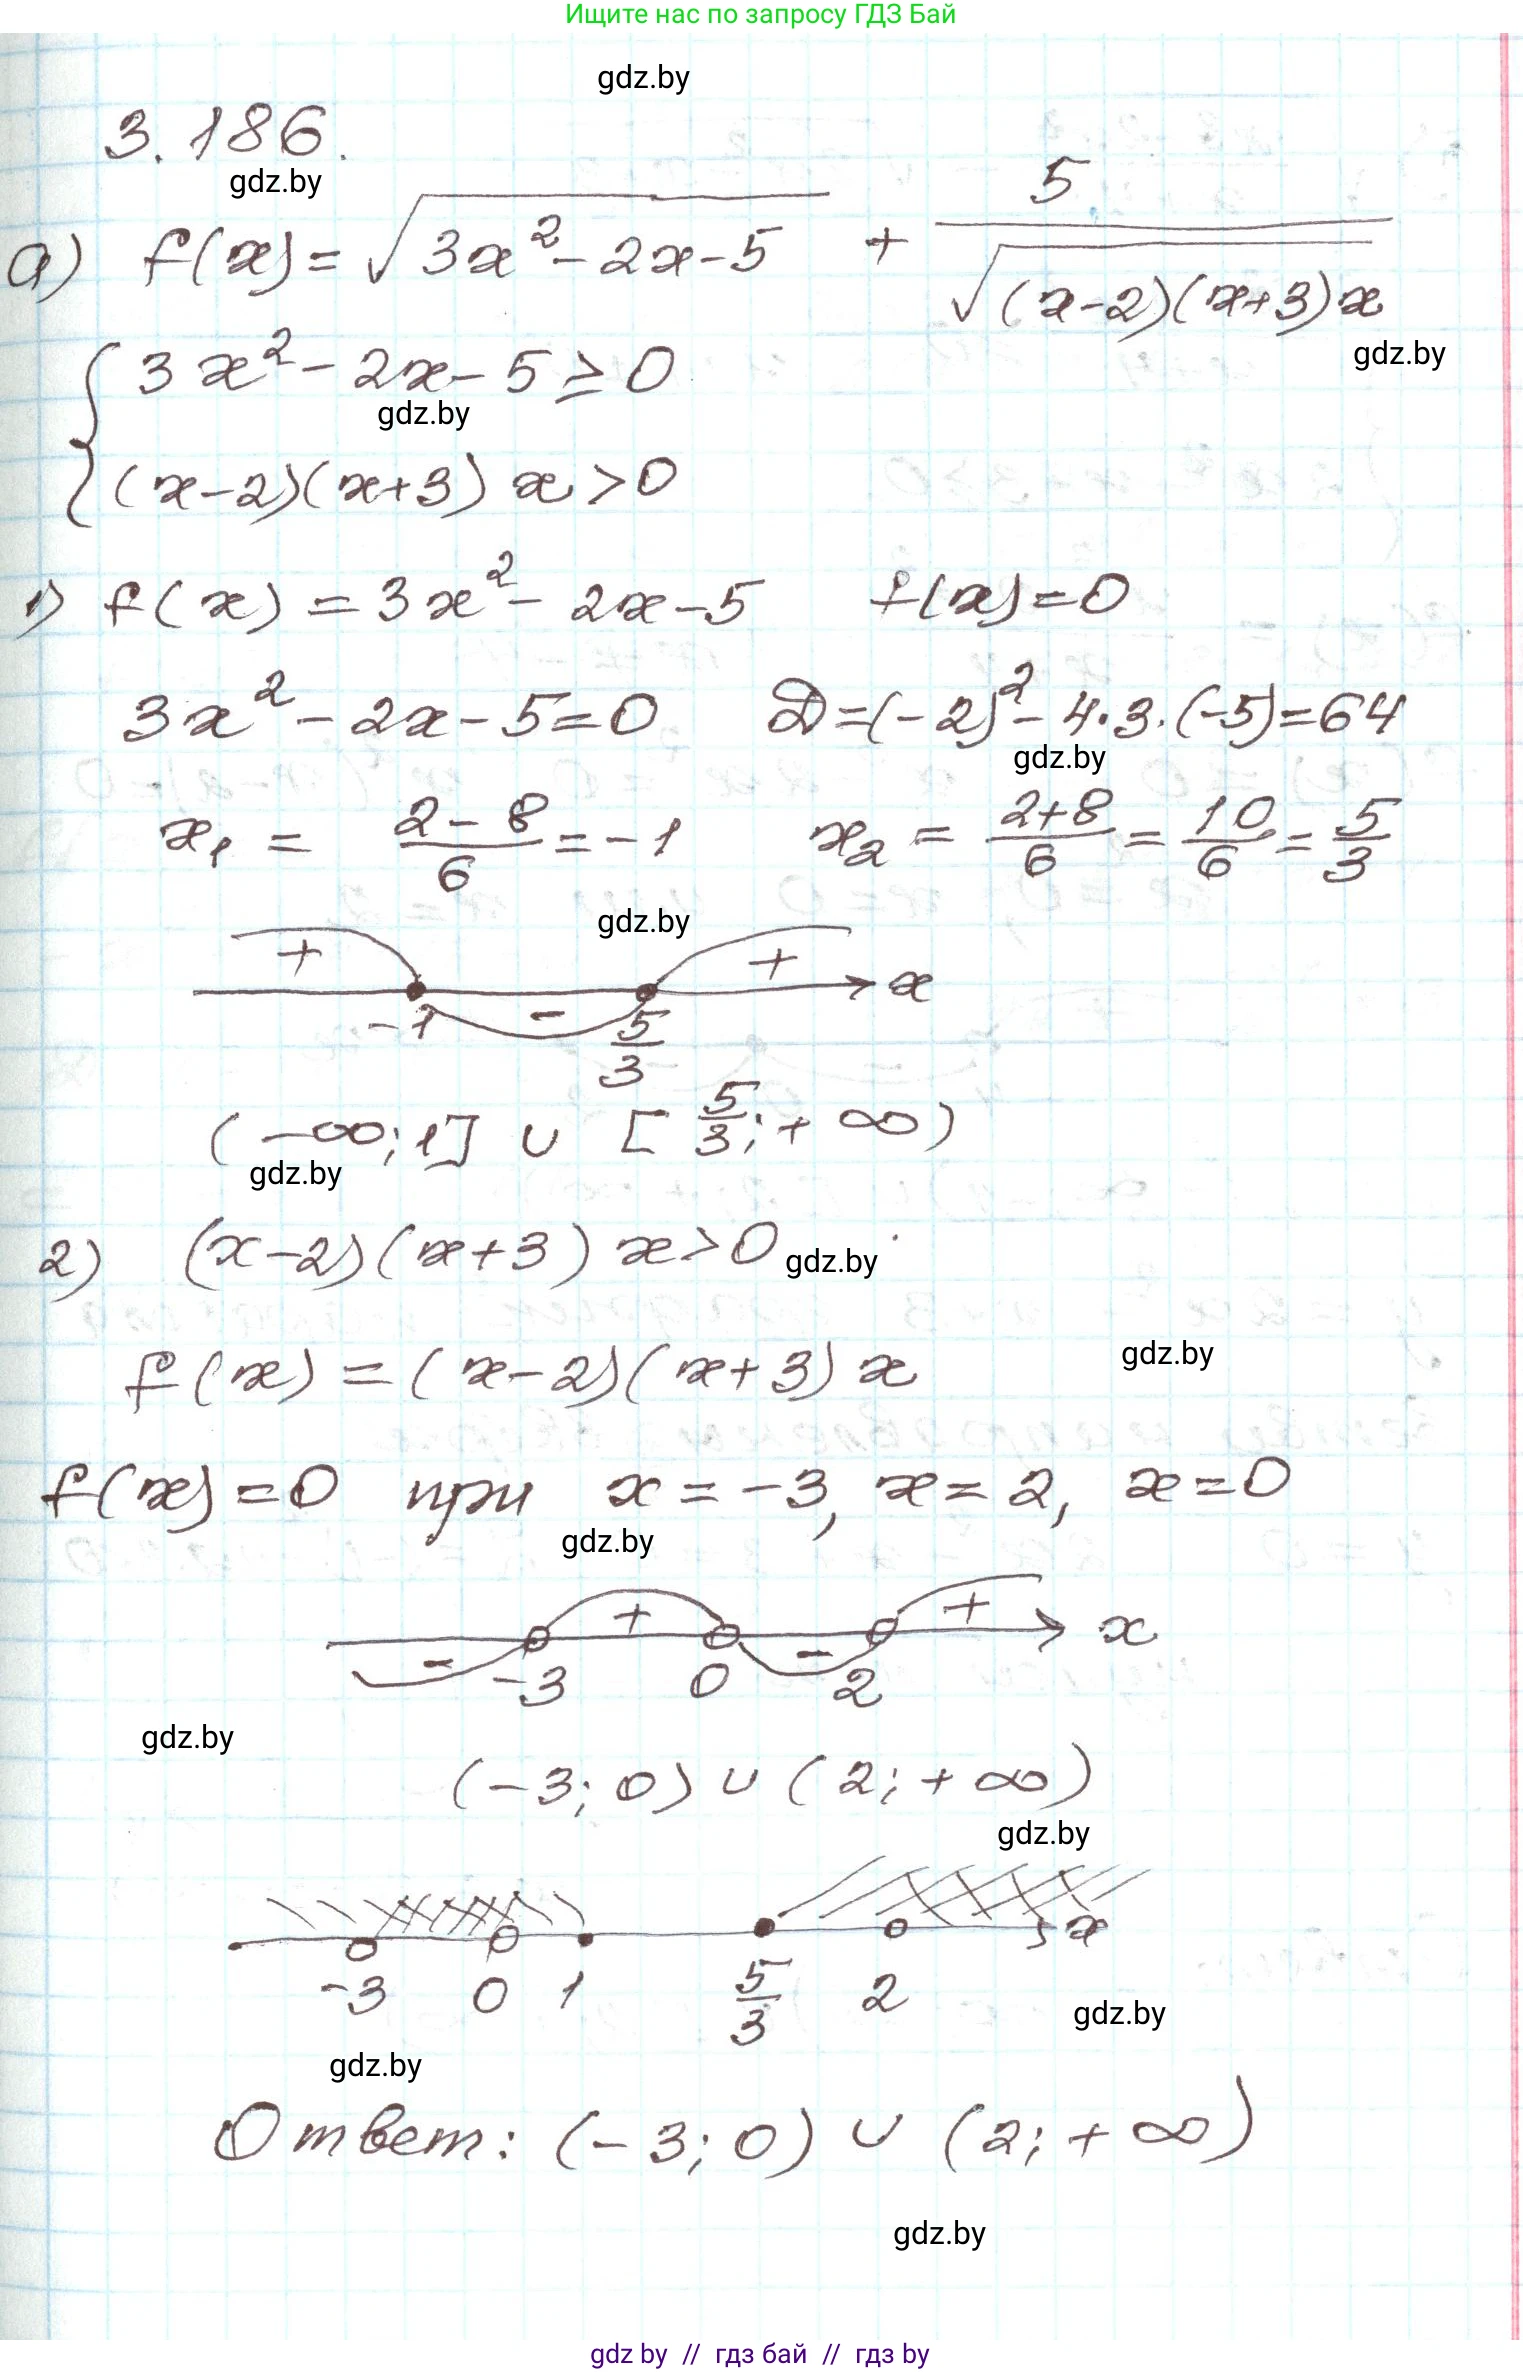 Ищите нас по запросу ГДЗ Бай
gdz.by
3.186.
gdz.by
а) f(x) = √(3x² - 2x - 5) + 5/√((x-2)(x+3)x)
gdz.by
{ 3x² - 2x - 5 ≥ 0
gdz.by
(x-2)(x+3)x > 0
1) f(x) = 3x² - 2x - 5 f(x) = 0
3x² - 2x - 5 = 0 D = (-2)² - 4·3·(-5) = 64
gdz.by
x₁ = (2-8)/6 = -1 x₂ = (2+8)/6 = 10/6 = 5/3
gdz.by
+ - + x
-1 5/3
(-∞; 1] ∪ [5/3; +∞)
gdz.by
2) (x-2)(x+3)x > 0
gdz.by
gdz.by
f(x) = (x-2)(x+3)x
f(x) = 0 при x = -3, x = 2, x = 0
gdz.by
- + - + x
-3 0 2
gdz.by
(-3; 0) ∪ (2; +∞)
gdz.by
x
-3 0 1 5/3 2
gdz.by
gdz.by
Ответ: (-3; 0) ∪ (2; +∞)
gdz.by
gdz by // гдз бай // гдз by